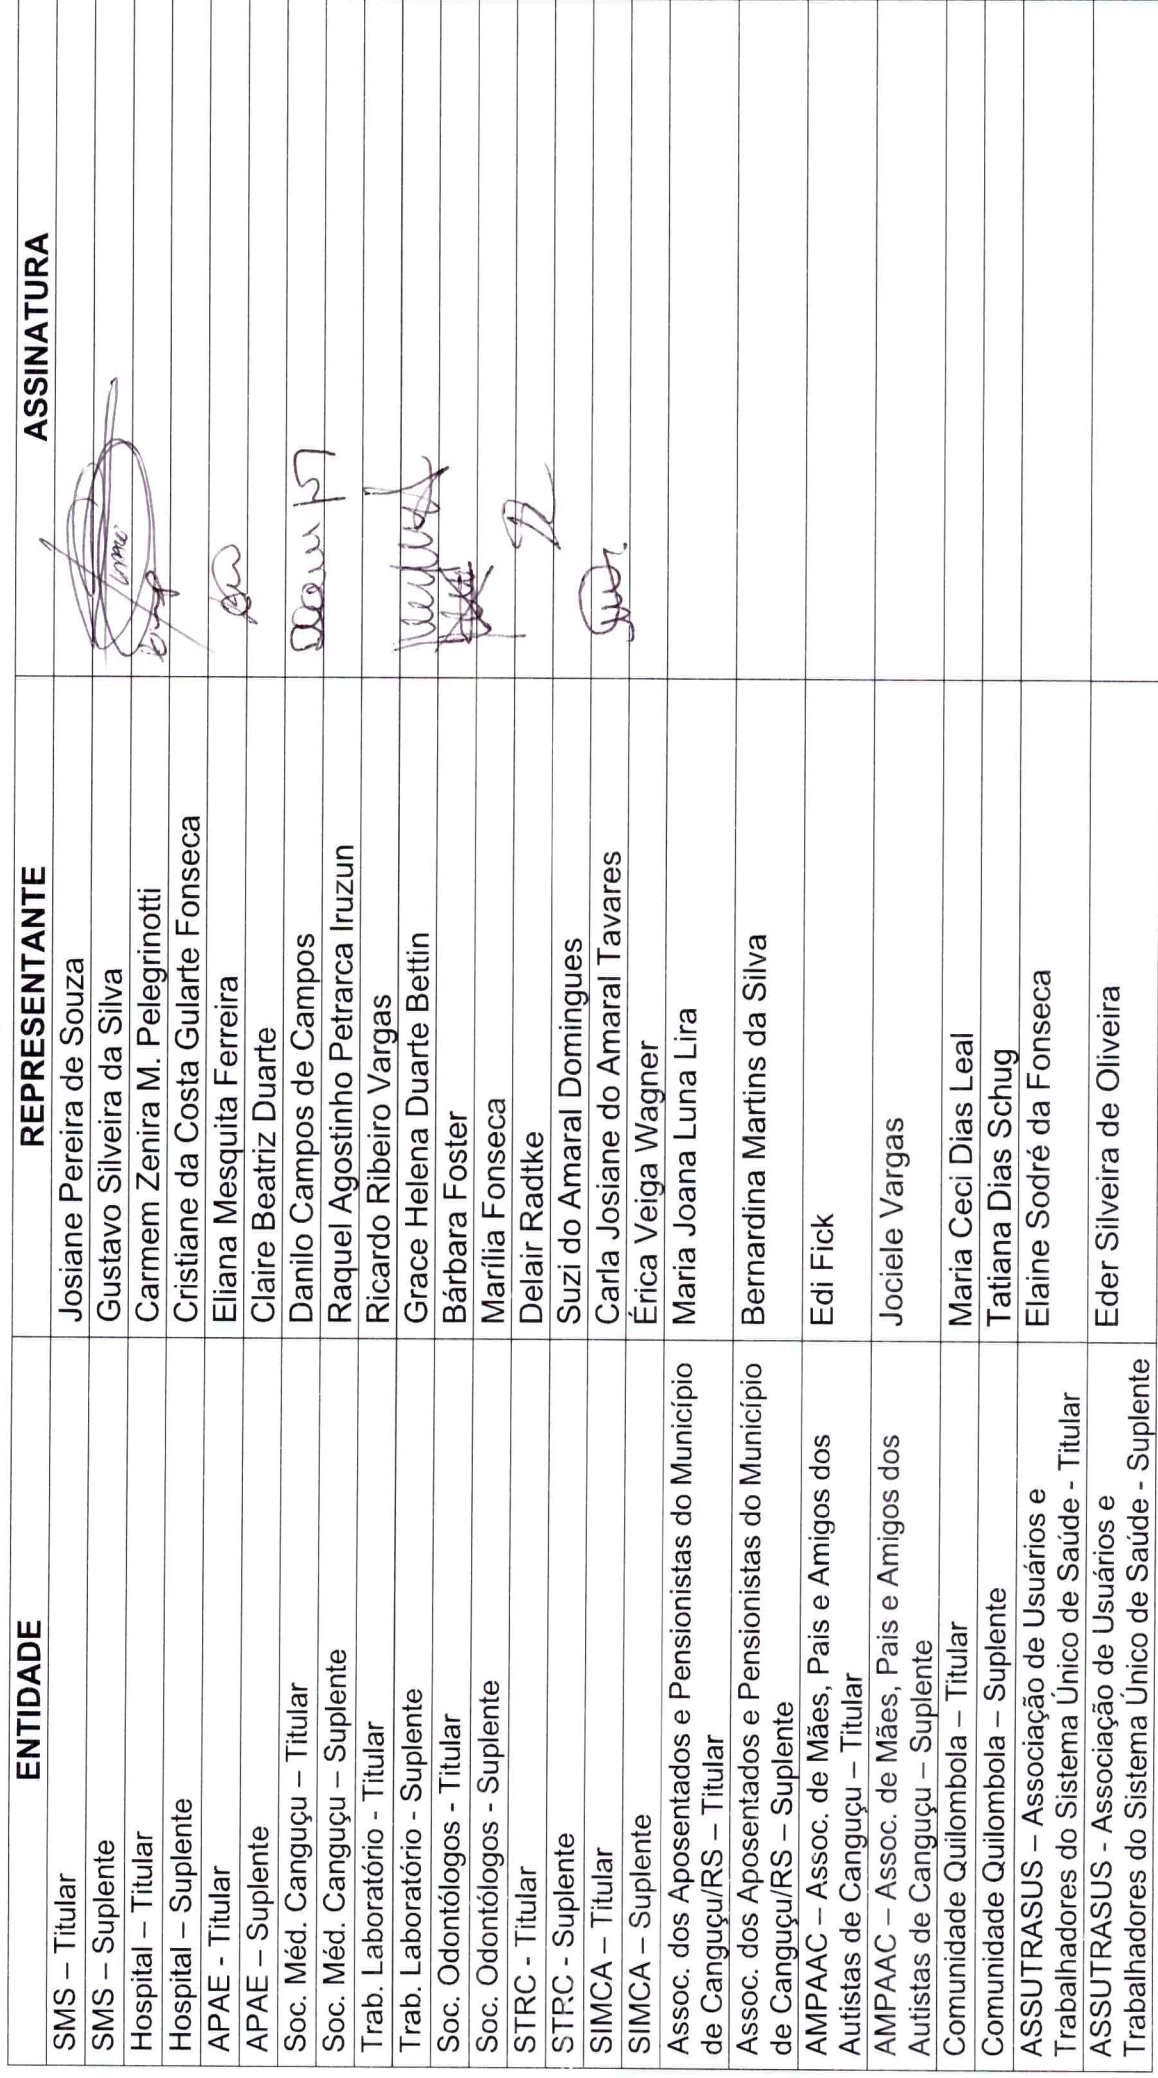 ENTIDADE REPRESENTANTE ASSINATURA
SMS – Titular Josiane Pereira de Souza
SMS – Suplente Gustavo Silveira da Silva
Hospital – Titular Carmem Zenira M. Pelegrinotti
Hospital – Suplente Cristiane da Costa Gularte Fonseca
APAE - Titular Eliana Mesquita Ferreira
APAE – Suplente Claire Beatriz Duarte
Soc. Méd. Canguçu – Titular Danilo Campos de Campos
Soc. Méd. Canguçu – Suplente Raquel Agostinho Petrarca Iruzun
Trab. Laboratório - Titular Ricardo Ribeiro Vargas
Trab. Laboratório - Suplente Grace Helena Duarte Bettin
Soc. Odontólogos - Titular Bárbara Foster
Soc. Odontólogos - Suplente Marília Fonseca
STRC - Titular Delair Radtke
STRC - Suplente Suzi do Amaral Domingues
SIMCA – Titular Carla Josiane do Amaral Tavares
SIMCA – Suplente Érica Veiga Wagner
Assoc. dos Aposentados e Pensionistas do Município Maria Joana Luna Lira
de Canguçu/RS – Titular
Assoc. dos Aposentados e Pensionistas do Município Bernardina Martins da Silva
de Canguçu/RS – Suplente
AMPAAC – Assoc. de Mães, Pais e Amigos dos Edi Fick
Autistas de Canguçu – Titular
AMPAAC – Assoc. de Mães, Pais e Amigos dos Jociele Vargas
Autistas de Canguçu – Suplente
Comunidade Quilombola – Titular Maria Ceci Dias Leal
Comunidade Quilombola – Suplente Tatiana Dias Schug
ASSUTRASUS – Associação de Usuários e Elaine Sodré da Fonseca
Trabalhadores do Sistema Único de Saúde - Titular
ASSUTRASUS - Associação de Usuários e Eder Silveira de Oliveira
Trabalhadores do Sistema Único de Saúde - Suplente